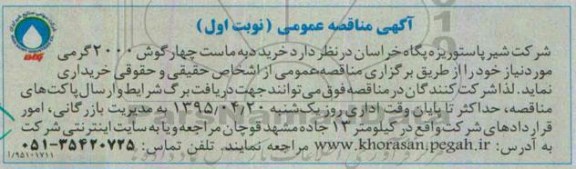 آگهی مناقصه عمومی (نوبت اول)
شرکت شیر پاستوریزه پگاه خراسان در نظر دارد خرید دبه ماست چهارگوش ۲۰۰۰ گرمی
مورد نیاز خود را از طریق برگزاری مناقصه عمومی از اشخاص حقیقی و حقوقی خریداری
نماید. لذا شرکت کنندگان در مناقصه فوق می توانند جهت دریافت برگ شرایط و ارسال پاکت های
مناقصه، حداکثر تا پایان وقت اداری روز یک شنبه ۱۳۹۵/۰۴/۲۰ به مدیریت بازرگانی، امور
قراردادهای شرکت واقع در کیلومتر ۱۳ جاده مشهد قوچان مراجعه و یا به سایت اینترنتی شرکت
به آدرس: www.khorasan.pegah.ir مراجعه نمایند. تلفن تماس: ۳۵۴۲۰۷۲۵-۰۵۱
۱/۹۵۱۰۱۷۱۱
ParsNamadData